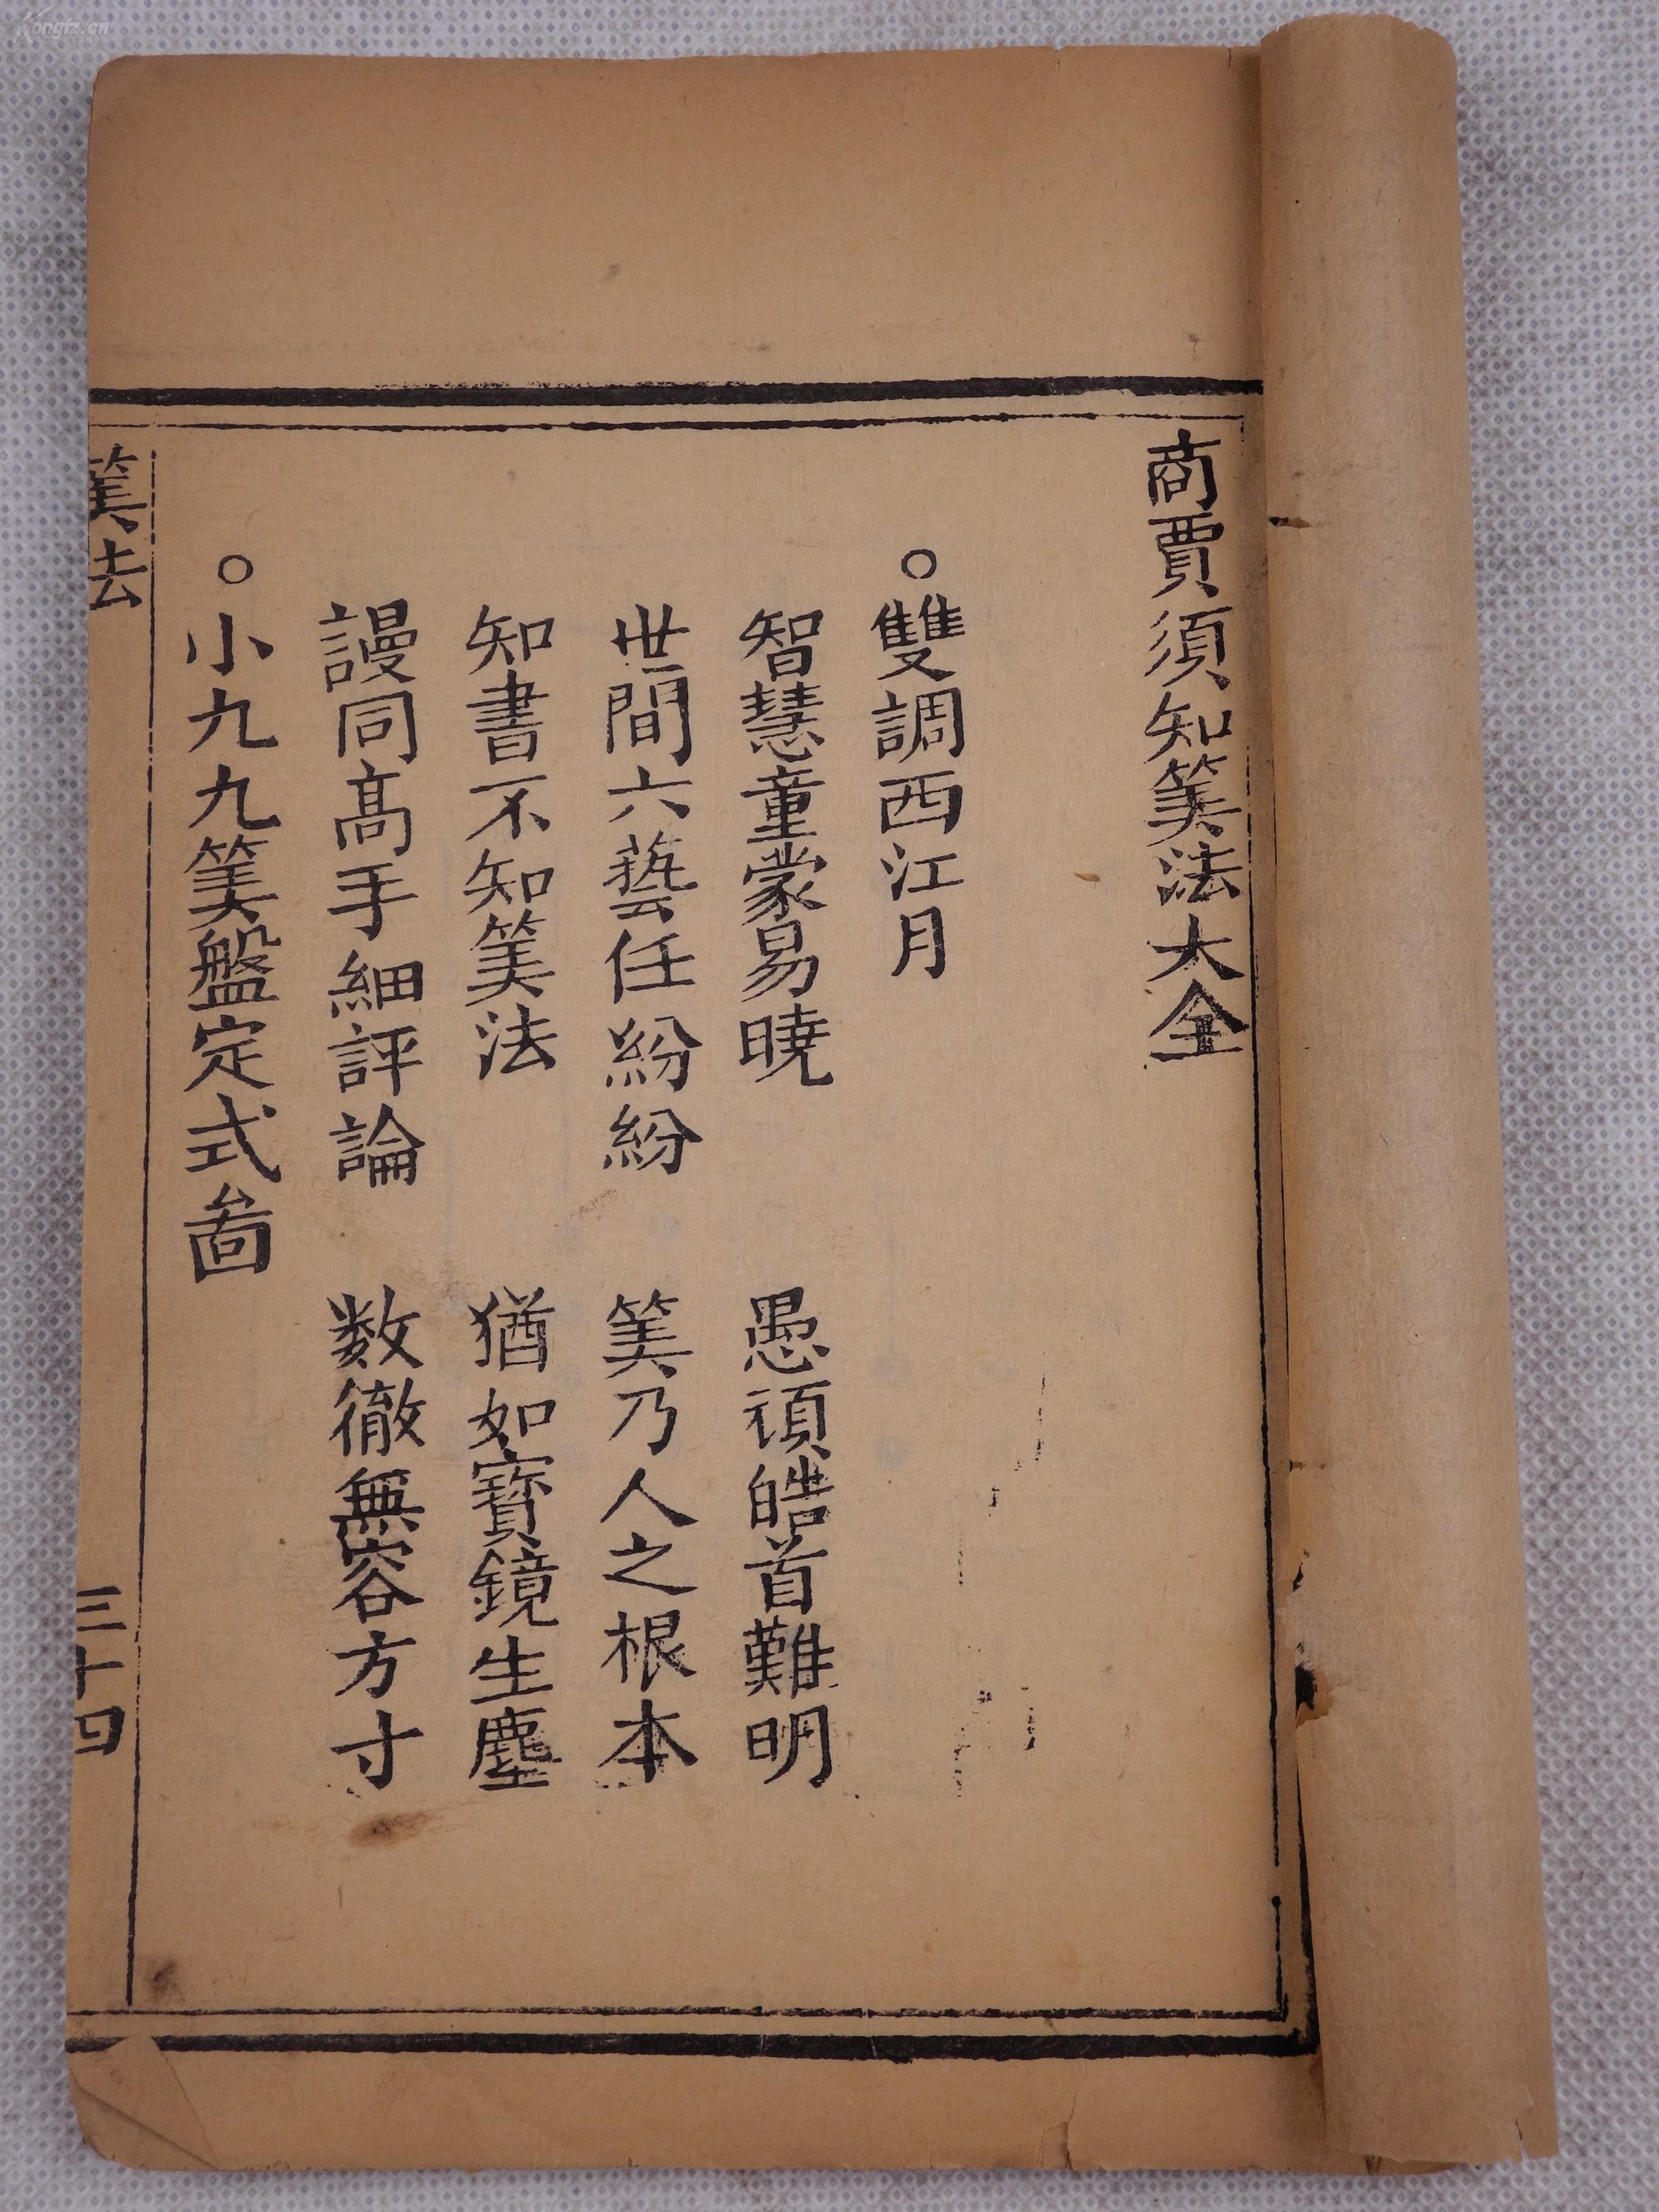 商賈須知筭法大全
○雙調西江月
智慧童蒙易曉 愚頑皓首難明
世間六藝任紛紛 筭乃人之根本
知書不知筭法 猶如寶鏡生塵
謾同高手細評論 数徹無容方寸
○小九九筭盤定式啚
筭法 三十四
Kongfz.cn